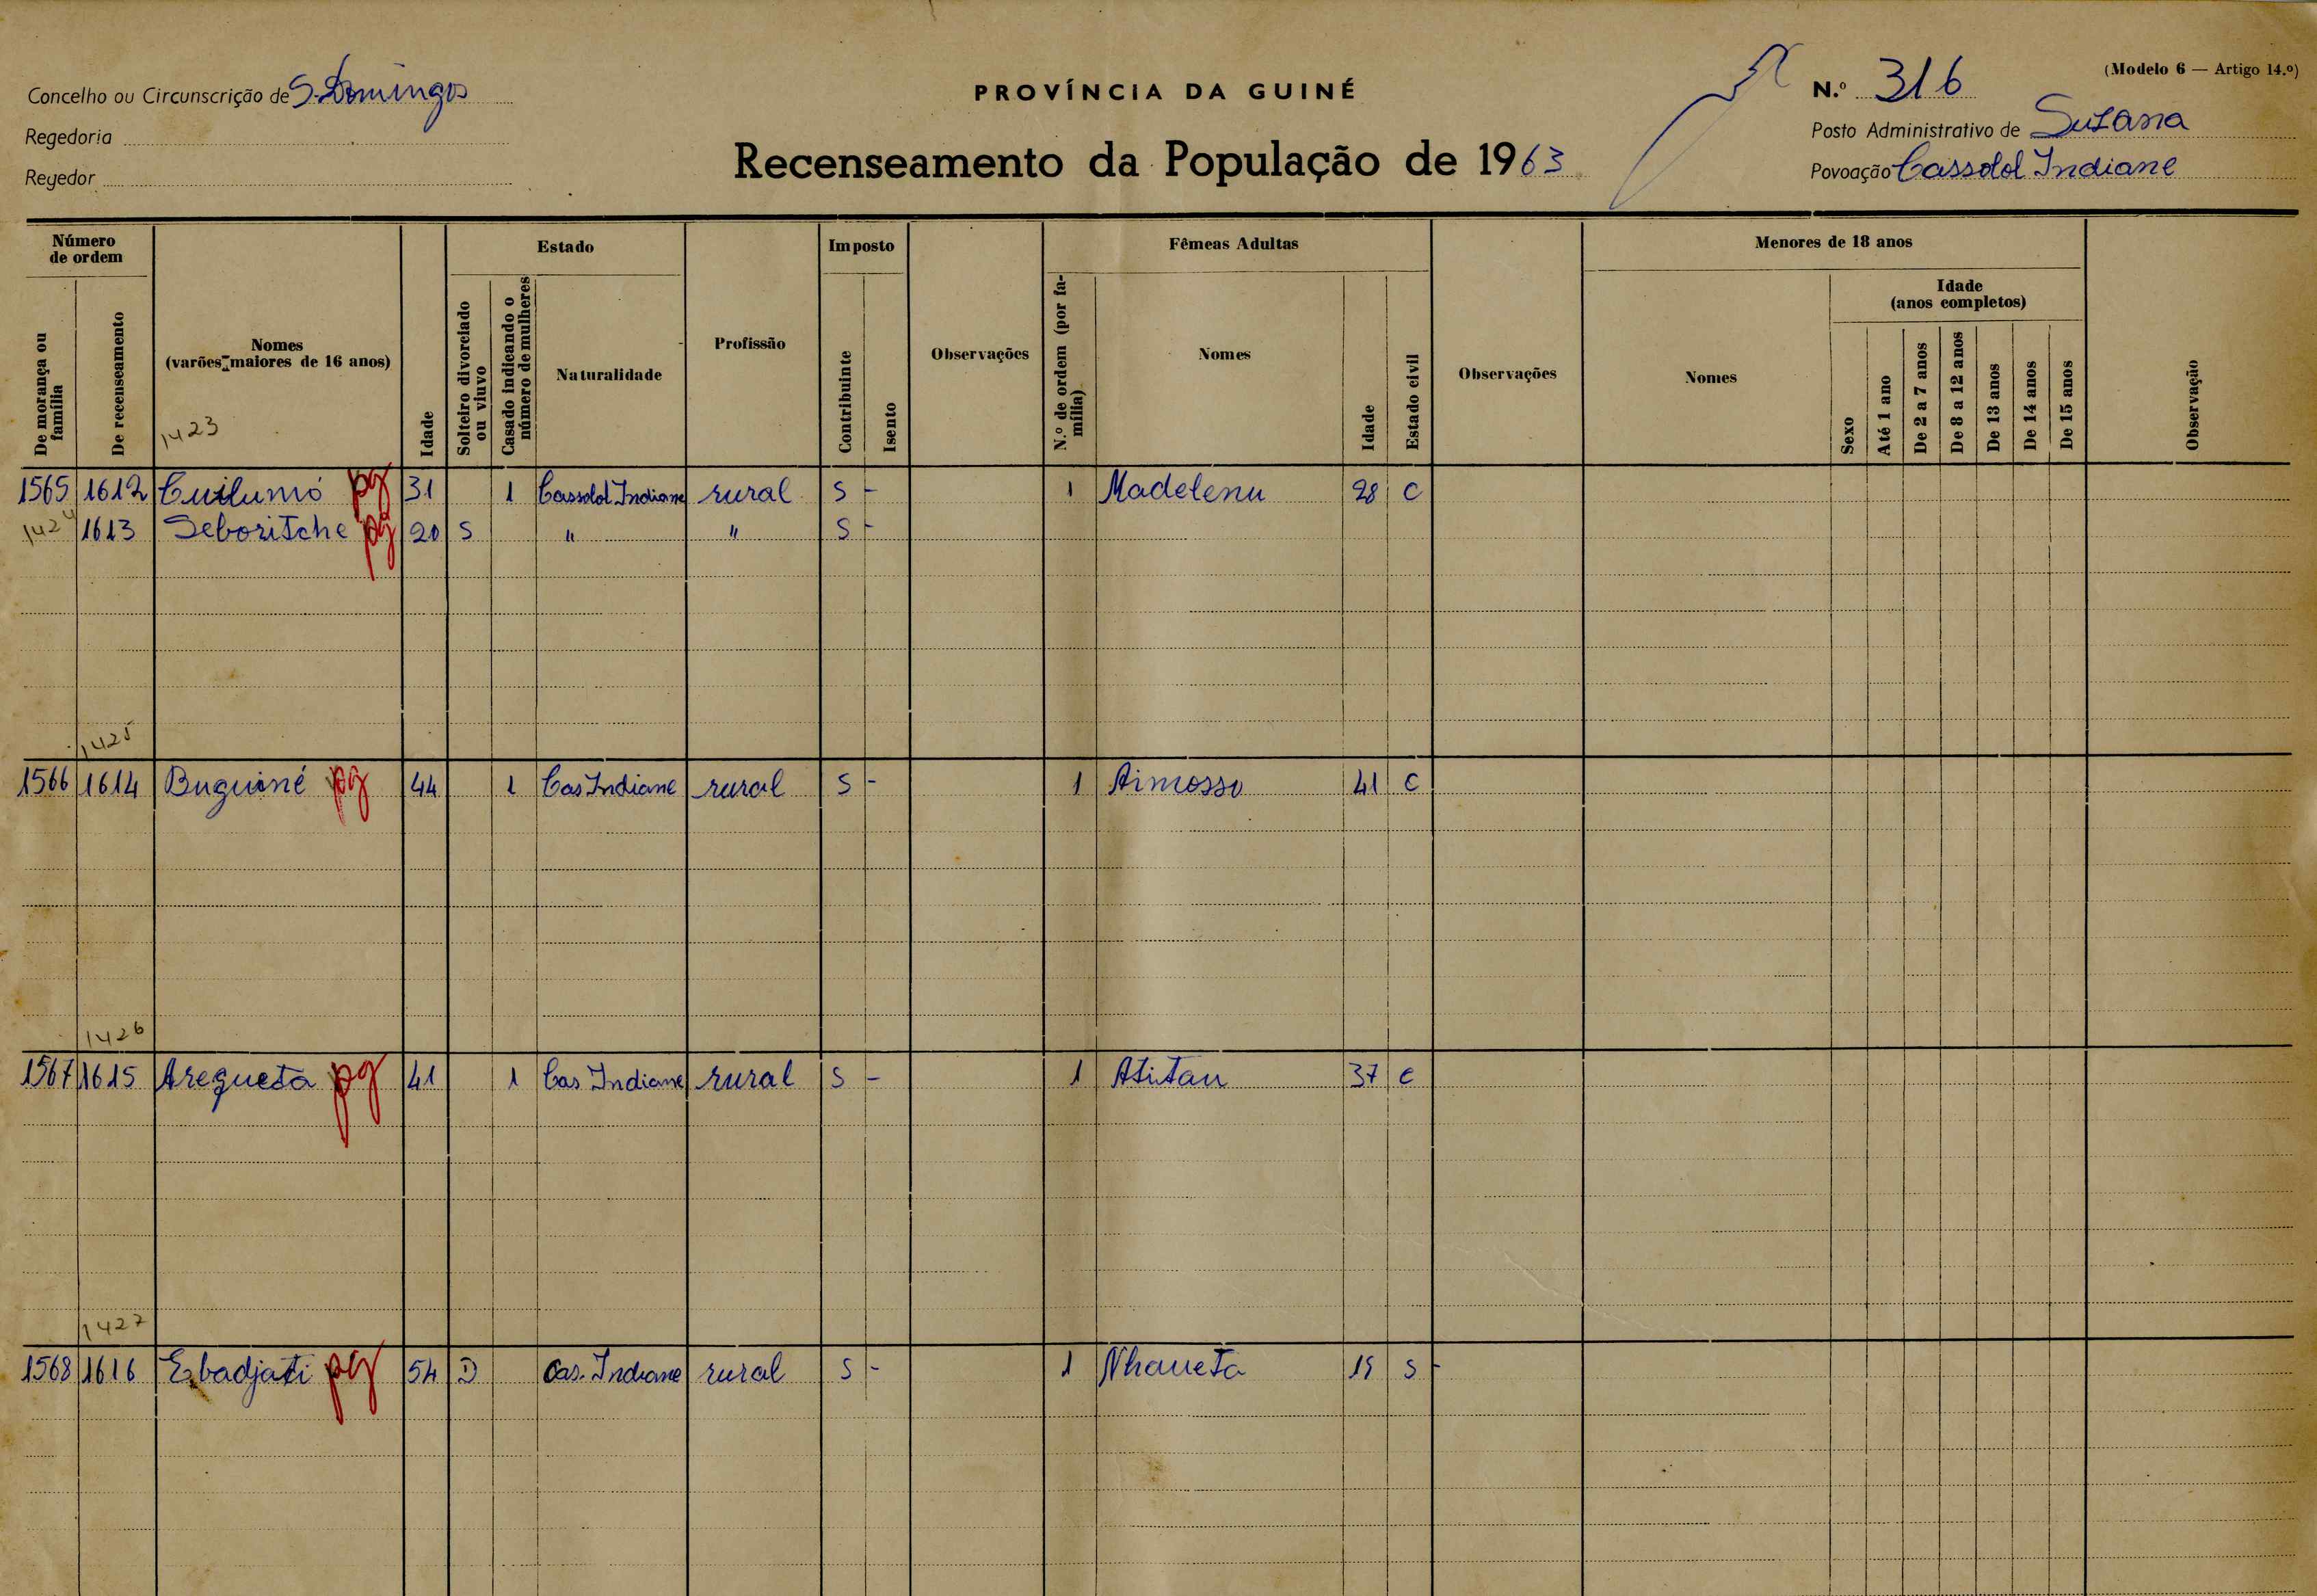 Concelho ou Circunscrição de S. Domingos
Regedoria
Regedor
PROVÍNCIA DA GUINÉ
Recenseamento da População de 1963
(Modelo 6 — Artigo 14.º)
N.º 316
Posto Administrativo de Suzana
Povoação Cassolol Indiane
Número de ordem
De morança ou família
De recenseamento
Nomes
(varões maiores de 16 anos)
1423
Idade
Estado
Solteiro divorciado ou viuvo
Casado indicando o número de mulheres
Naturalidade
Profissão
Imposto
Contribuinte
Isento
Observações
Fêmeas Adultas
N.º de ordem (por família)
Nomes
Idade
Estado civil
Observações
Menores de 18 anos
Nomes
Sexo
Idade
(anos completos)
Até 1 ano
De 2 a 7 anos
De 8 a 12 anos
De 13 anos
De 14 anos
De 15 anos
Observação
1565 1612 Cuilumó pg 31 1 Cassolol Indiane rural S - 1 Madelenu 28 C
1424 1613 Seboritche pg 20 S " " S -
1425
1566 1614 Buguiné pg 44 1 Cas Indiane rural S - 1 Aimosso 41 C
1426
1567 1615 Aregueta pg 41 1 Cas Indiane rural S - 1 Atitau 37 C
1427
1568 1616 Ebadjati pg 54 D Cas. Indiane rural S - 1 Nhaueta S -